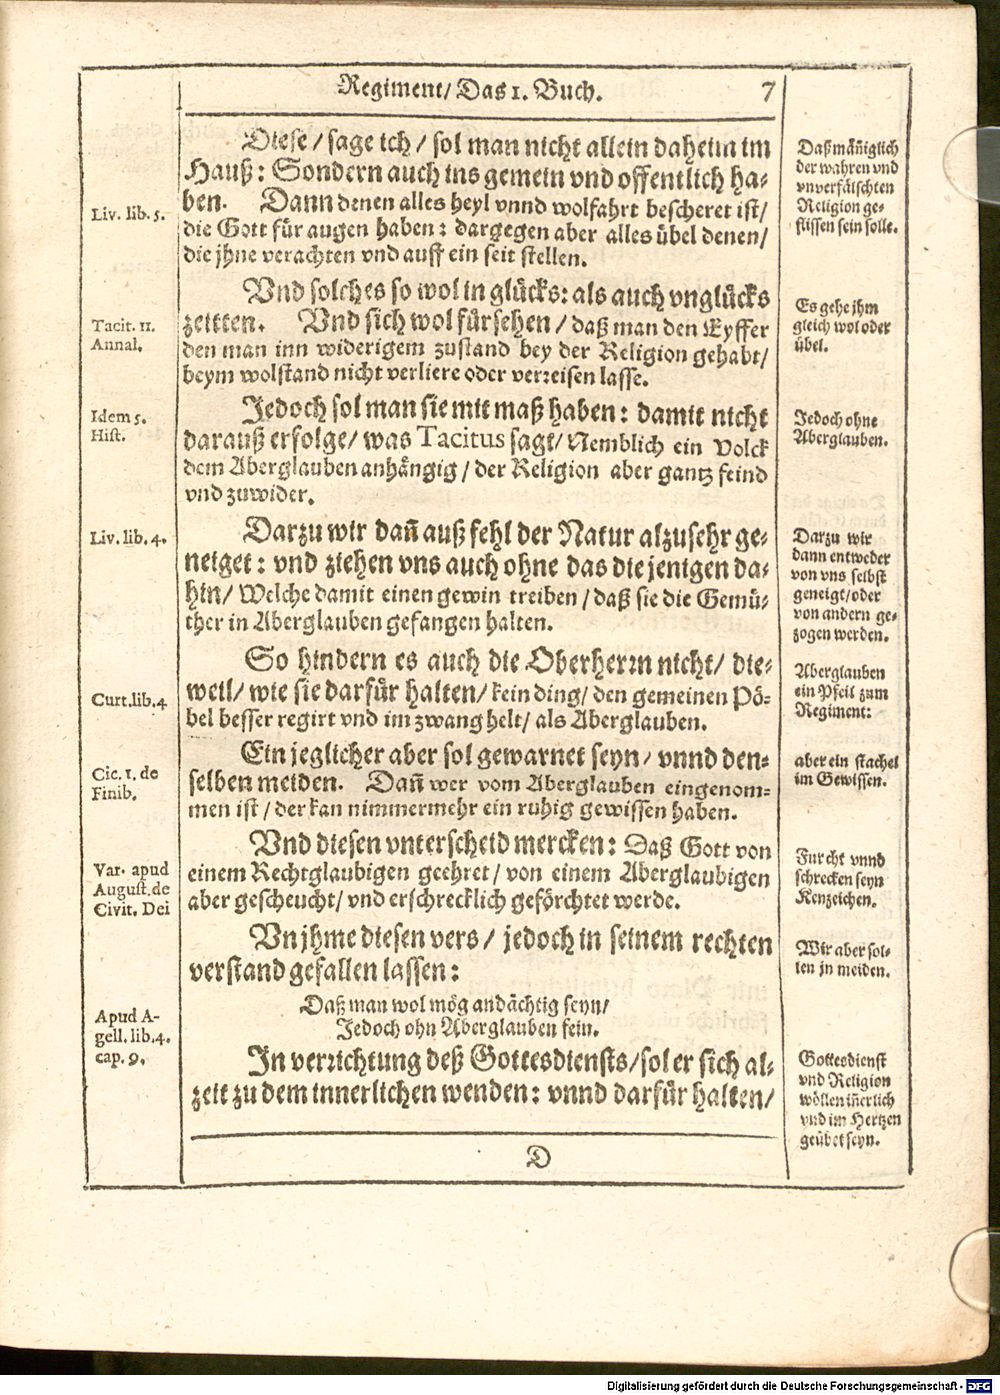 Regiment/ Das 1. Buch. 7
Diese / sage ich / sol man nicht allein daheim im
Hauß: Sondern auch ins gemein vnd offentlich ha-
ben. Dann denen alles heyl vnnd wolfahrt bescheret ist/
die Gott für augen haben: dargegen aber alles übel denen/
die jhne verachten vnd auff ein seit stellen.
Vnd solches so wol in glücks: als auch vnglücks
zeitten. Vnd sich wol fürsehen / daß man den Eyffer
den man inn widerigem zustand bey der Religion gehabt/
beym wolstand nicht verliere oder verreisen lasse.
Jedoch sol man sie mit maß haben: damit nicht
darauß erfolge/ was Tacitus sagt/ Nemblich ein Volck
dem Aberglauben anhängig / der Religion aber gantz feind
vnd zuwider.
Darzu wir dañ auß fehl der Natur alzusehr ge-
neiget: vnd ziehen vns auch ohne das diejenigen da-
hin/ Welche damit einen gewin treiben / daß sie die Gemü-
ther in Aberglauben gefangen halten.
So hindern es auch die Oberherrn nicht/ die-
weil/ wie sie darfür halten/ kein ding/ den gemeinen Pö-
bel besser regirt vnd im zwang helt/ als Aberglauben.
Ein jeglicher aber sol gewarnet seyn/ vnnd den-
selben meiden. Dañ wer vom Aberglauben eingenom-
men ist / der kan nimmermehr ein ruhig gewissen haben.
Vnd diesen vnterscheid mercken: Daß Gott von
einem Rechtglaubigen geehret/ von einem Aberglaubigen
aber gescheucht/ vnd erschrecklich geförchtet werde.
Vn jhme diesen vers / jedoch in seinem rechten
verstand gefallen lassen:
Daß man wol mög andächtig seyn/
Jedoch ohn Aberglauben fein.
In verrichtung deß Gottesdiensts/ sol er sich al-
zeit zu dem innerlichen wenden: vnnd darfür halten/
D
Liv. lib. 5.
Tacit. 11.
Annal.
Idem 5.
Hist.
Liv. lib. 4.
Curt. lib. 4
Cic. 1. de
Finib.
Var. apud
August. de
Civit. Dei
Apud A-
gell. lib. 4.
cap. 9.
Daß mäñiglich
der wahren vnd
vnverfälschten
Religion ge-
flissen sein solle.
Es gehe jhm
gleich wol oder
übel.
Jedoch ohne
Aberglauben.
Darzu wir
dann entweder
von vns selbst
geneigt/ oder
von andern ge-
zogen werden.
Aberglauben
ein Pfeil zum
Regiment:
aber ein stachel
im Gewissen.
Furcht vnnd
schrecken seyn
Kenzeichen.
Wir aber sol-
len jn meiden.
Gottesdienst
vnd Religion
wöllen iñerlich
vnd im Hertzen
geübet seyn.
Digitalisierung gefördert durch die Deutsche Forschungsgemeinschaft - DFG